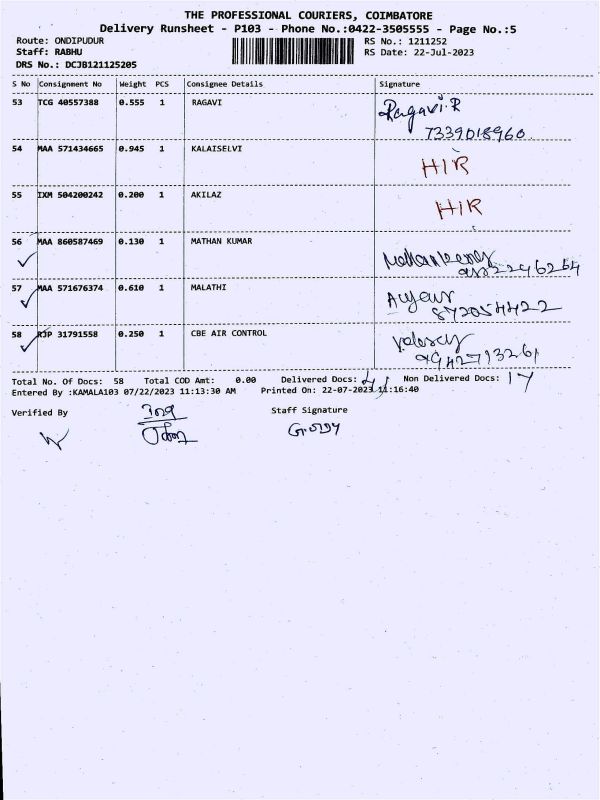 THE PROFESSIONAL COURIERS, COIMBATORE
Delivery Runsheet - P103 - Phone No.:0422-3505555 - Page No.:5
Route: ONDIPUDUR RS No.: 1211252
Staff: RABHU RS Date: 22-Jul-2023
DRS No.: DCJB121125205
S No Consignment No Weight PCS Consignee Details Signature
53 TCG 40557388 0.555 1 RAGAVI Ragavi.R
7339018960
54 MAA 571434665 0.945 1 KALAISELVI HIR
55 IXM 504200242 0.200 1 AKILAZ HIR
56 MAA 860587469 0.130 1 MATHAN KUMAR
57 MAA 571676374 0.610 1 MALATHI
58 RJP 31791558 0.250 1 CBE AIR CONTROL
Total No. Of Docs: 58 Total COD Amt: 0.00 Delivered Docs: 41 Non Delivered Docs: 17
Entered By :KAMALA103 07/22/2023 11:13:30 AM Printed On: 22-07-2023 11:16:40
Verified By Staff Signature